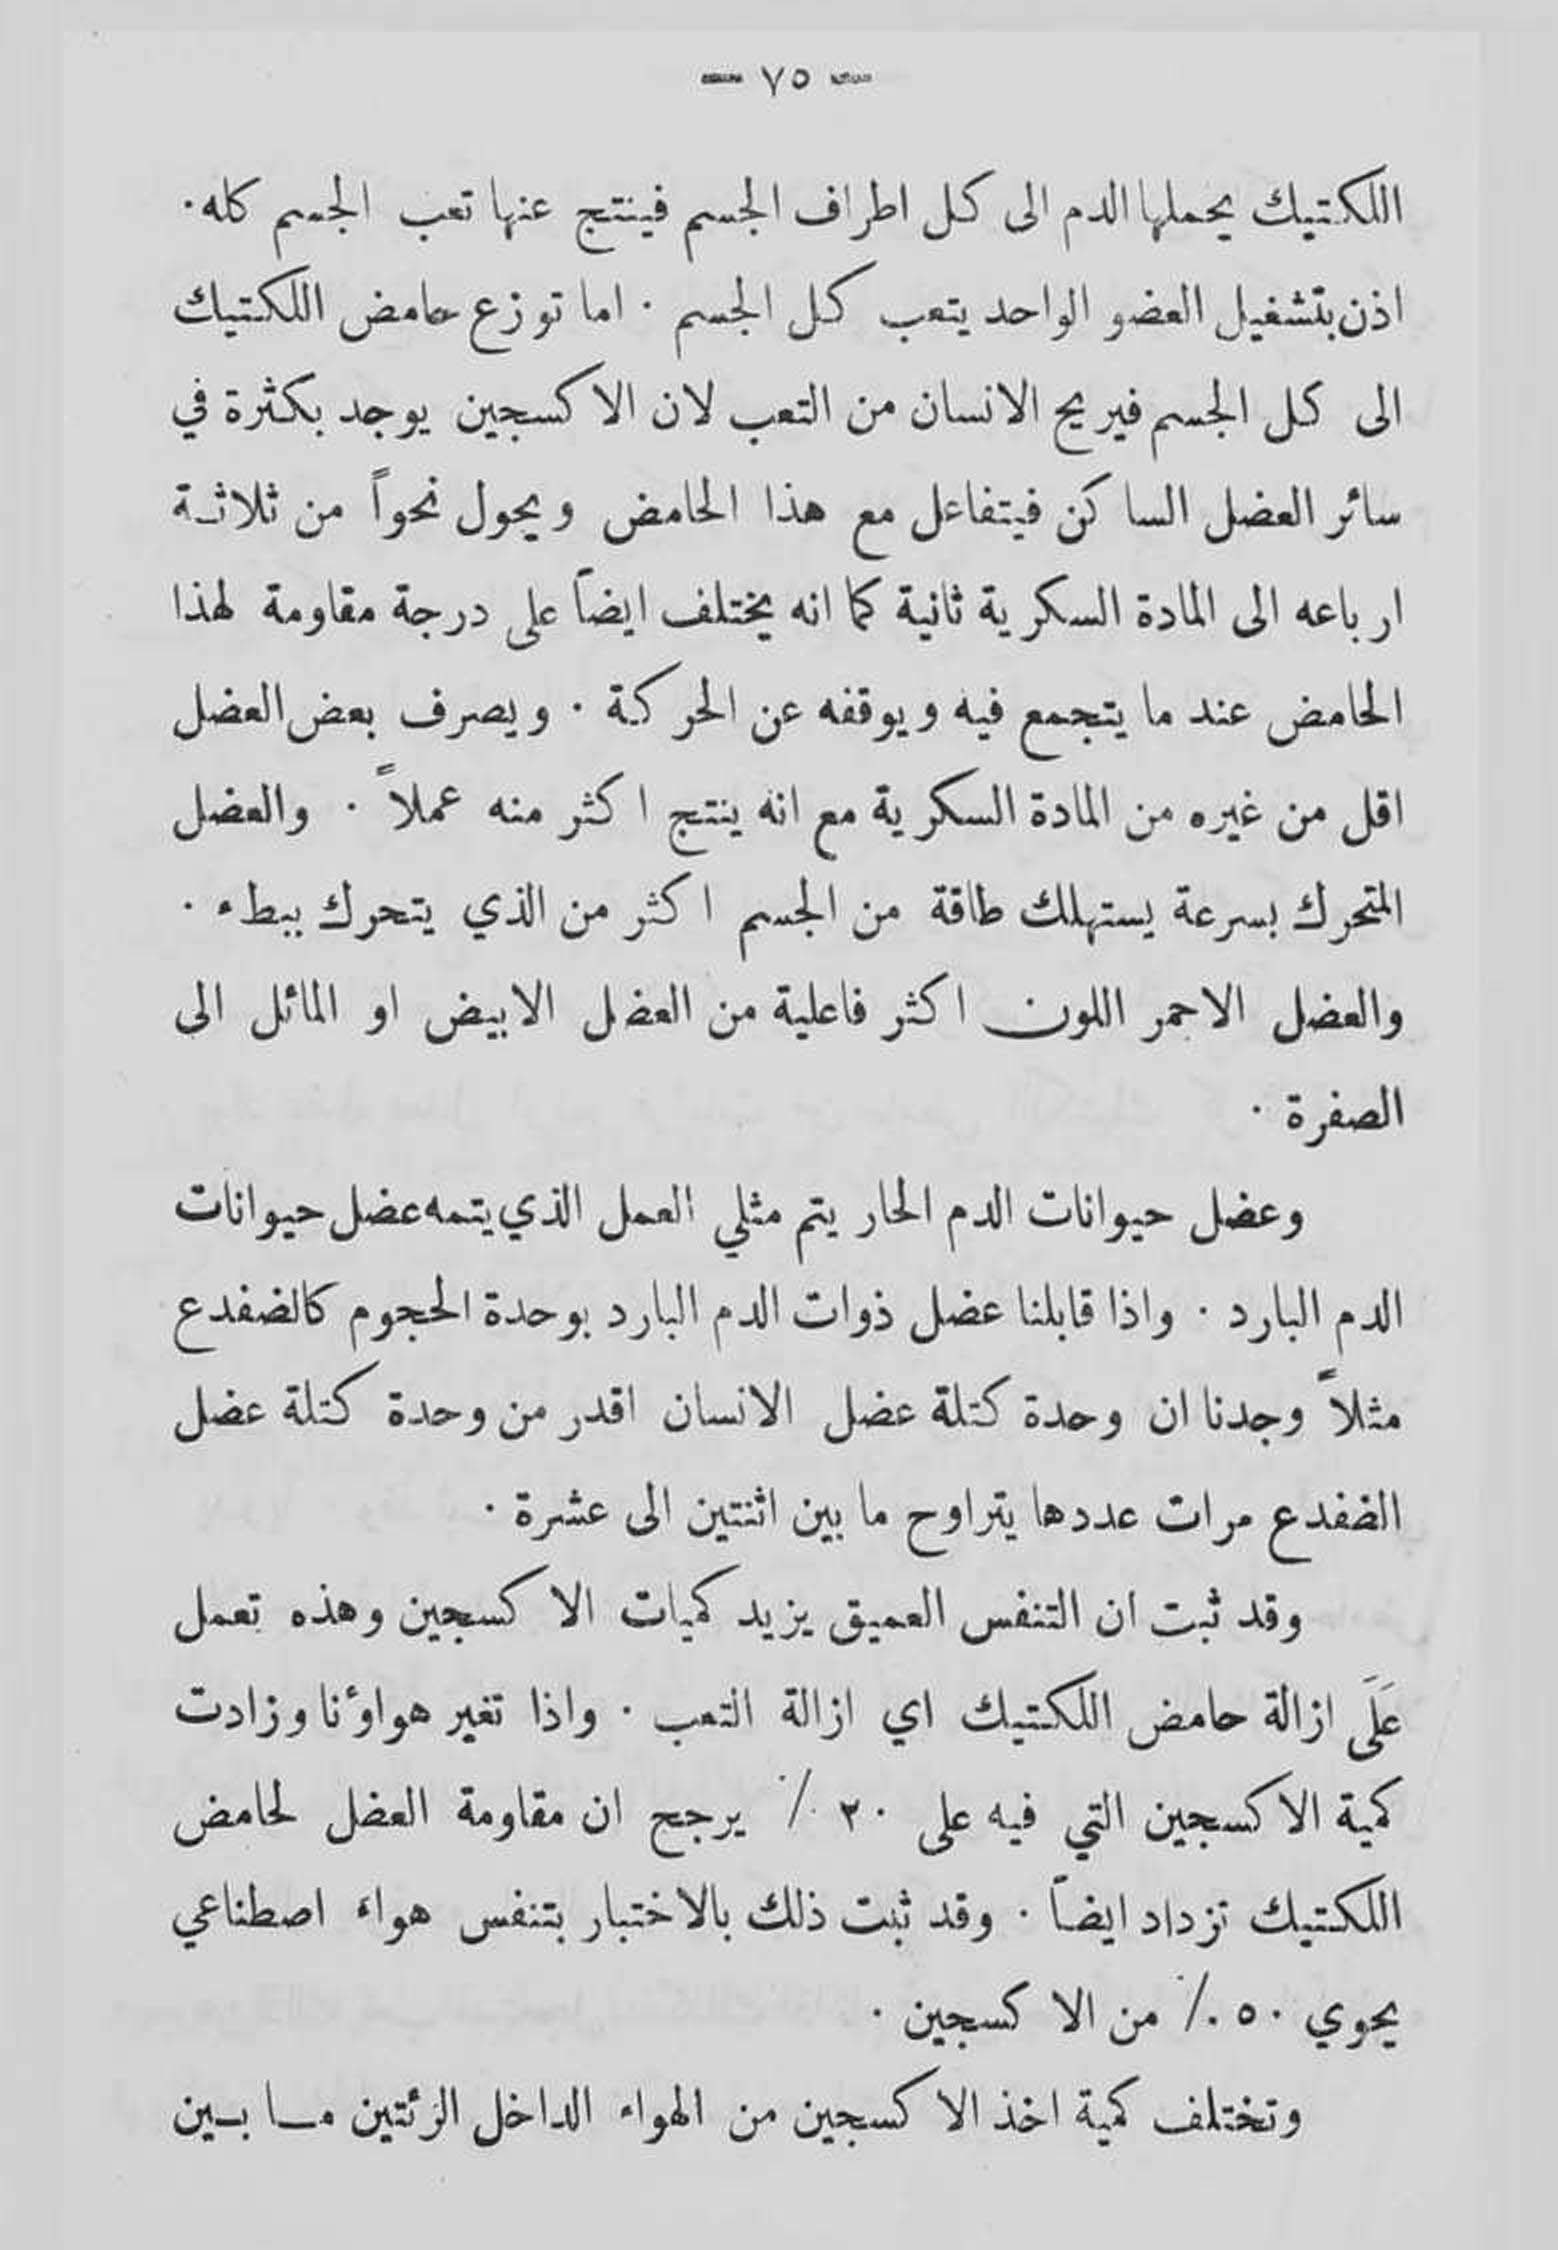 — ٧٥ —
اللكتيك يحملها الدم الى كل اطراف الجسم فينتج عنها تعب الجسم كله.
اذن بتشغيل العضو الواحد يتعب كل الجسم . اما توزع حامض اللكتيك
الى كل الجسم فيريح الانسان من التعب لان الاكسجين يوجد بكثرة في
سائر العضل الساكن فيتفاعل مع هذا الحامض ويحول نحواً من ثلاثة
ارباعه الى المادة السكرية ثانية كما انه يختلف ايضاً على درجة مقاومة لهذا
الحامض عند ما يتجمع فيه ويوقفه عن الحركة . ويصرف بعض العضل
اقل من غيره من المادة السكرية مع انه ينتج اكثر منه عملاً . والعضل
المتحرك بسرعة يستهلك طاقة من الجسم اكثر من الذي يتحرك ببطء .
والعضل الاحمر اللون اكثر فاعلية من العضل الابيض او المائل الى
الصفرة .
وعضل حيوانات الدم الحار يتم مثلي العمل الذي يتمه عضل حيوانات
الدم البارد . واذا قابلنا عضل ذوات الدم البارد بوحدة الحجوم كالضفدع
مثلاً وجدنا ان وحدة كتلة عضل الانسان اقدر من وحدة كتلة عضل
الضفدع مرات عددها يتراوح ما بين اثنتين الى عشرة .
وقد ثبت ان التنفس العميق يزيد كميات الاكسجين وهذه تعمل
عَلَى ازالة حامض اللكتيك اي ازالة التعب . واذا تغير هواؤنا وزادت
كمية الاكسجين التي فيه على ٢٠ ٪ يرجح ان مقاومة العضل لحامض
اللكتيك تزداد ايضاً . وقد ثبت ذلك بالاختبار بتنفس هواء اصطناعي
يحوي ٥٠ ٪ من الاكسجين .
وتختلف كمية اخذ الاكسجين من الهواء الداخل الرئتين ما بين